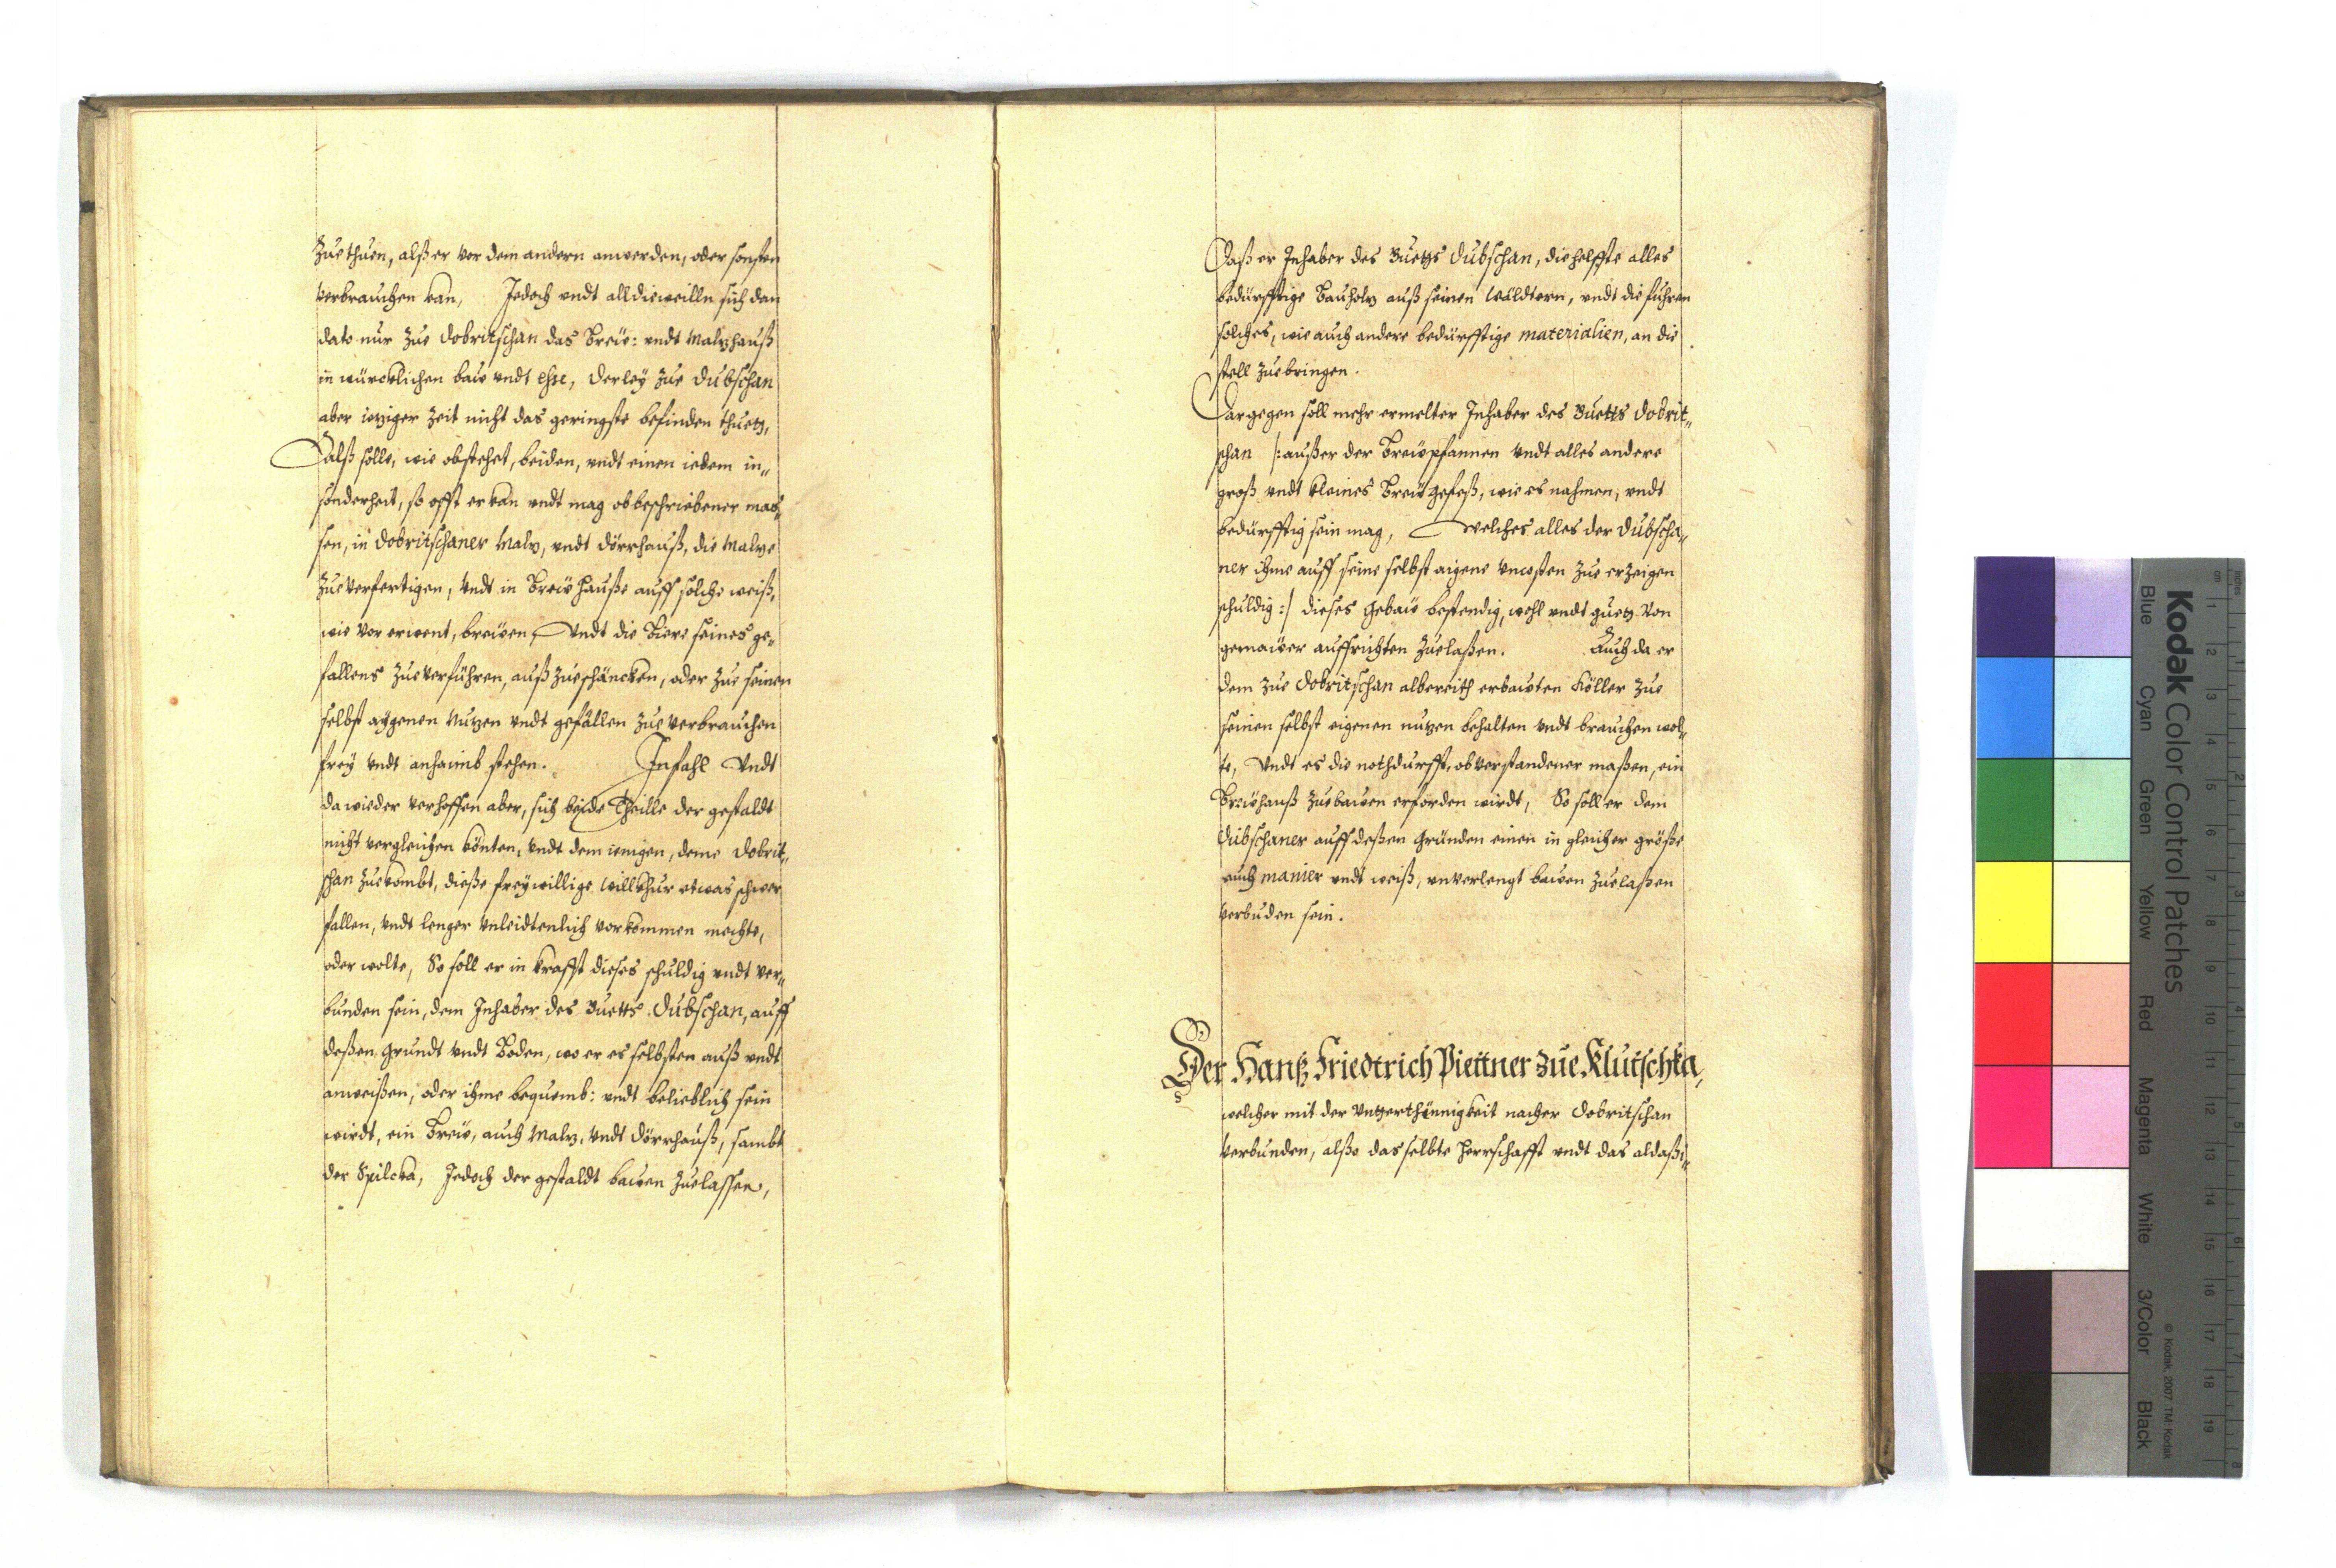 Zue thuen, alß er vor dem andern anwerden, oder sonsten
verbrauchen kan, Jedoch undt alldieweilln sich dan
dato nur zue Dobritschan das Breü: undt Maltzhauß
in würcklichen baw undt esse, derley zue Dubschan
aber ietziger Zeit nicht das geringste befinden thuett,
Alß solle, wie obstehet, beiden, undt einen iedem in„
sonderheit, so offt er kan undt mag obbeschriebener mas„
sen, in Dobritschaner Maltz, undt dörrhauß, die Maltze
zue verfertigen, Undt in Breüe Hauße auff solche weiß,
wie vor erwent, breüen, Undt die Biere seines ge„
fallens zue verführen, auß zueschäncken, oder zue seinen
selbst aygenen Nutzen undt gefällen zue verbrauchen
frey undt anhaimb stehen. Infahl Undt
da wieder verhoffen aber, sich beide Theille der gestaldt
nicht vergleichen könten, Undt dem ienigen, deme Dobrit„
schan zuekombt, dieße freywillige willkhur etwas schwer
fallen, undt lenger unleidtenlich vorkommen mochte,
oder wolte, So soll er in krafft dieses schuldig undt ver„
bunden sein, dem Inhaber des Guetts Dubschan, auff
deßen Grundt undt Boden, wo er es selbsten auß undt
anweißen, oder ihme bequemb: undt belieblich sein
wirdt, ein Breüe, auch Maltz, Undt dörrhauß, sambt
der Spilcka, Jedoch der gestaldt bawen zuelassen,
Daß er Inhaber des Guetts Dubschan, die helffte alles
bedürfftige Bauholtz auß seinen Wäldtern, undt die fuhren
solches, wie auch andere bedürfftige materialien, an die
stell zuebringen.
Dargegen soll mehr ermelter Inhaber des Guetts Dobrit„
schan /: außer der Breüepfannen Undt alles andere
groß undt kleines Breü gefeß, wie es nahmen, undt
bedürfftig sein mag, Welches alles der Dubscha„
ner ihme auff seine selbst aigene uncosten zue erzeigen
schuldig :/ dieses Gebaüe bestendig, wohl undt guett von
gemaüer auffrichten zuelaßen. Auch da er
dem zue Dobritschan albereith erbauten Köller zue
seinen selbst eigenen nutzen behalten undt brauchen wol„
te, Undt es die nothdurfft, obverstandener maßen, ein
Breühauß zuebawen erforden wirdt, So soll er dem
Dubschaner auff deßen Gründen einen in gleicher größe
auch manier undt weiß, unverlengt bawen zuelaßen
verbuden sein.
Der Hanß Friedtrich Piettner zue Klutschka,
welcher mit der Unterthännigkeit nacher Dobritschan
verbunden, alßo das selbte Herrschafft undt das aldaßi„